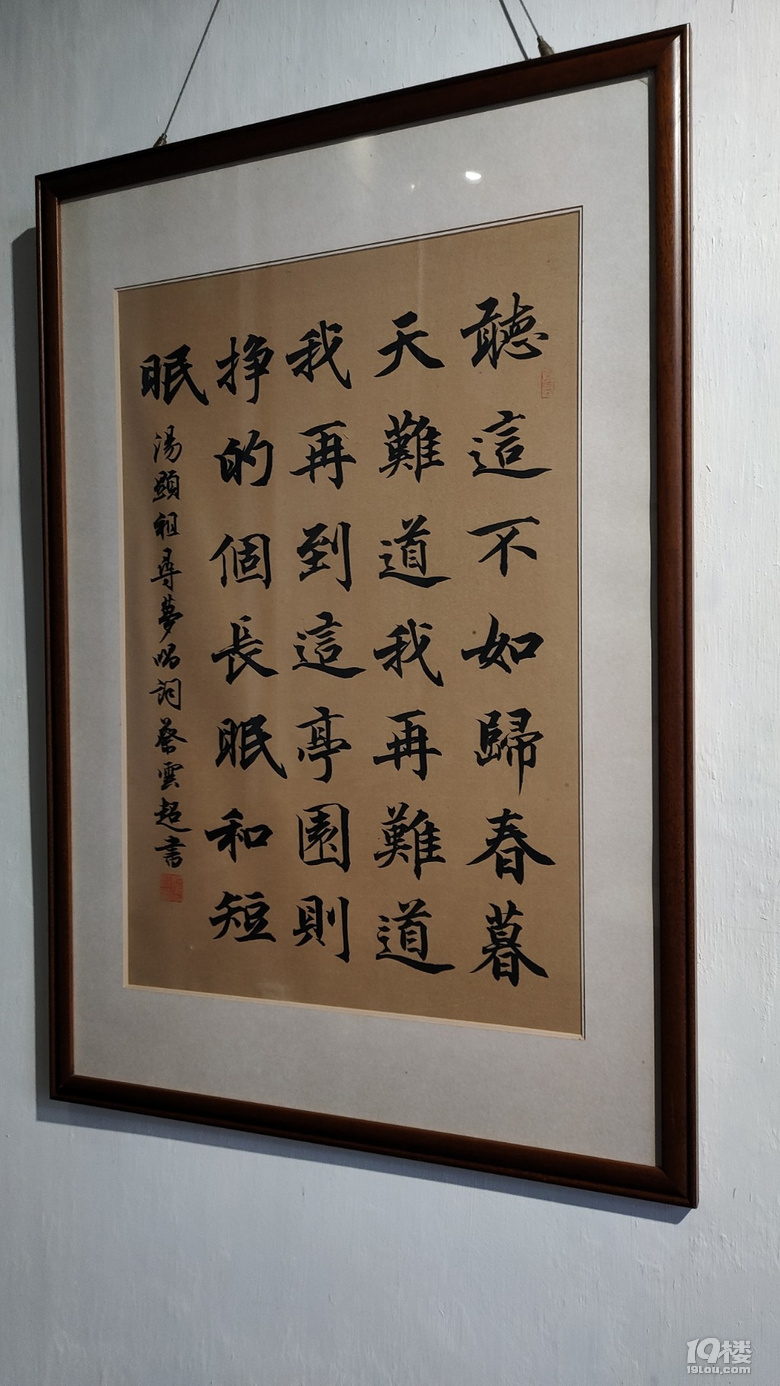 聽這不如歸春暮
天難道我再難道
我再到這亭園則
掙的個長眠和短
眠
湯顯祖尋夢唱詞蔡雲超書
19楼
19lou.com